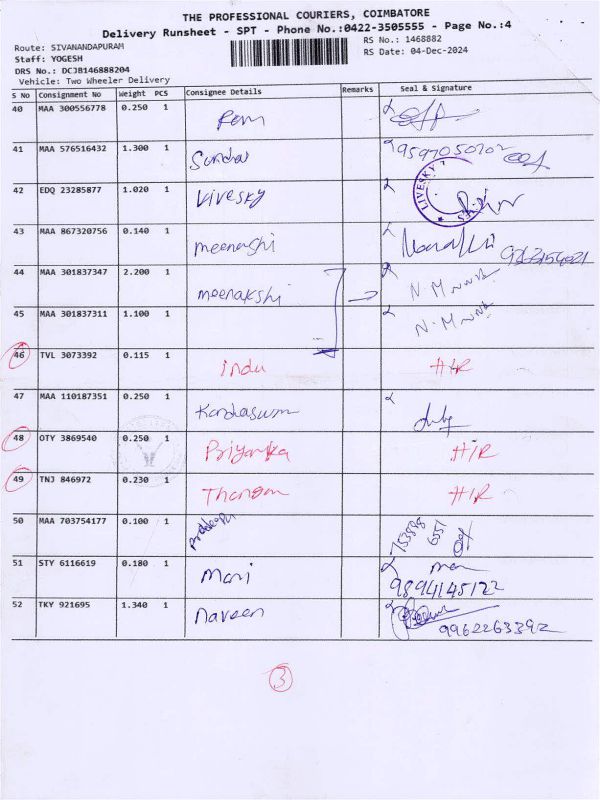 THE PROFESSIONAL COURIERS, COIMBATORE
Delivery Runsheet - SPT - Phone No.:0422-3505555 - Page No.:4
Route: SIVANANDAPURAM RS No.: 1468882
Staff: YOGESH RS Date: 04-Dec-2024
DRS No.: DCJB146888204
Vehicle: Two Wheeler Delivery
S No Consignment No Weight PCS Consignee Details Remarks Seal & Signature
40 MAA 300556778 0.250 1
41 MAA 576516432 1.300 1 Sundar
42 EDQ 23285877 1.020 1 Livesky LIVESKY
43 MAA 867320756 0.140 1 meenashi
44 MAA 301837347 2.200 1 meenakshi
45 MAA 301837311 1.100 1
46 TVL 3073392 0.115 1 indu H/R
47 MAA 110187351 0.250 1
48 OTY 3869540 0.250 1 Priyanka H/R
49 TNJ 846972 0.230 1 H/R
50 MAA 703754177 0.100 1
51 STY 6116619 0.180 1 mari
9894145122
52 TKY 921695 1.340 1 naveen
9962263392
3